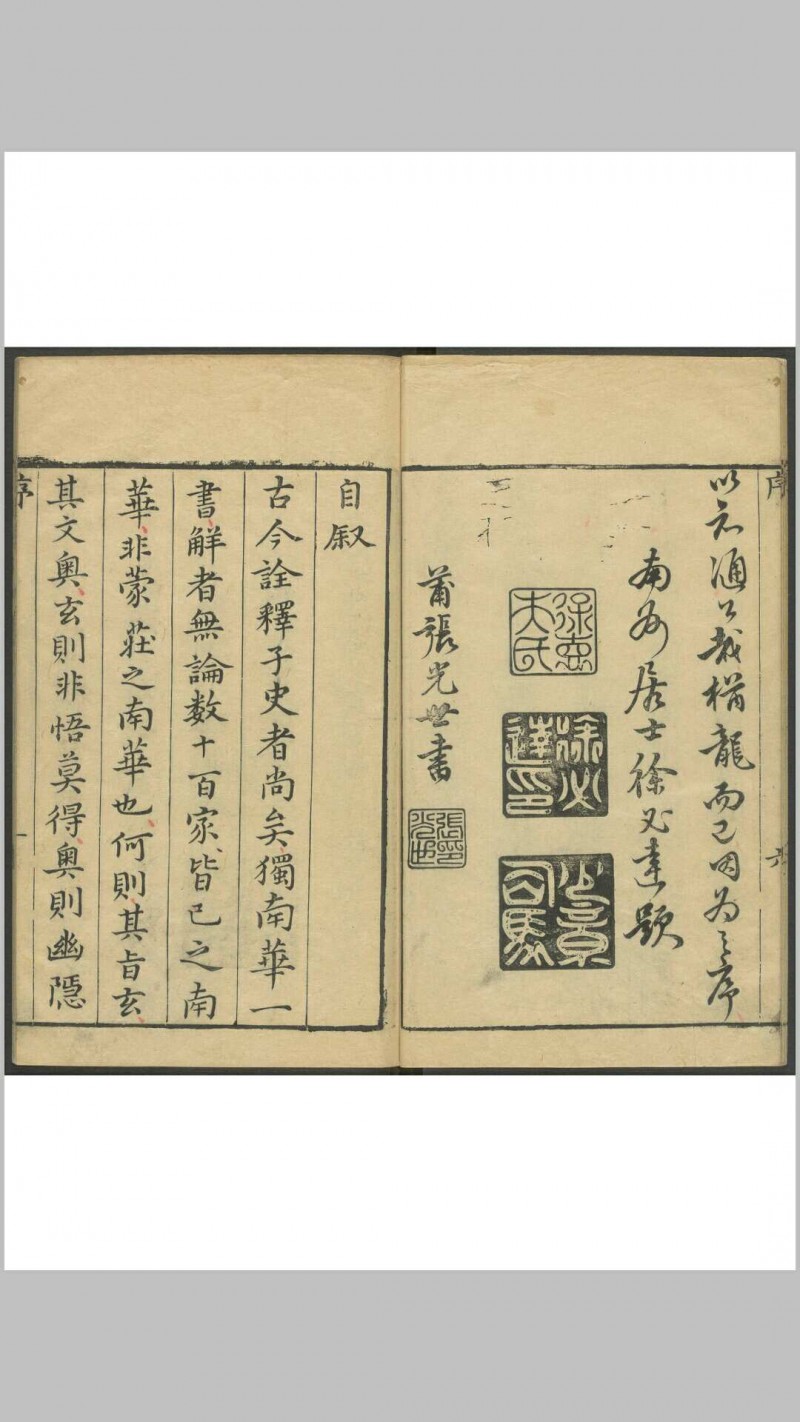 序
六
以通哉龍而已因为之序
南州居士徐必達題
徐悳夫氏
徐必達印
司馬
莆張光世書
張印光世
自叙
古今詮釋子史者尚矣獨南華一
書、解者無論数十百家、皆已之南
華、非蒙莊之南華也、何則、其旨玄、
其文奥、玄則非悟莫得、奥則幽隠
序
一